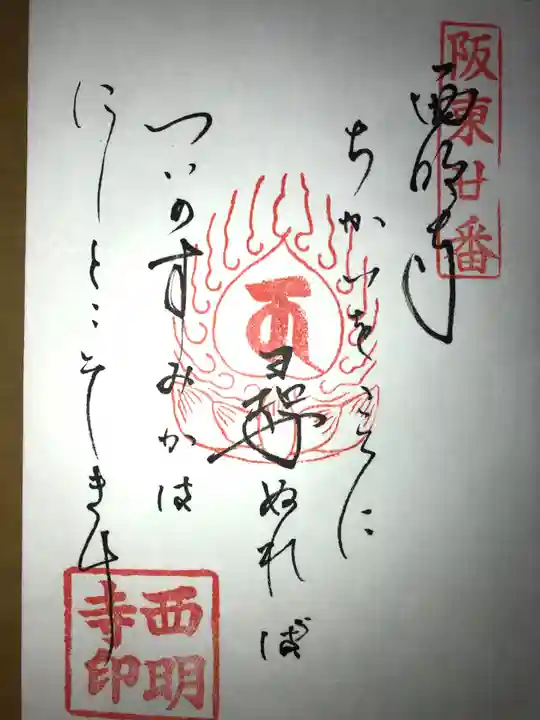 阪東廿番
西明寺
ちかいをばこゝに
尋ぬれば
ついのすみかは
にしとこそきけ
西明
寺印